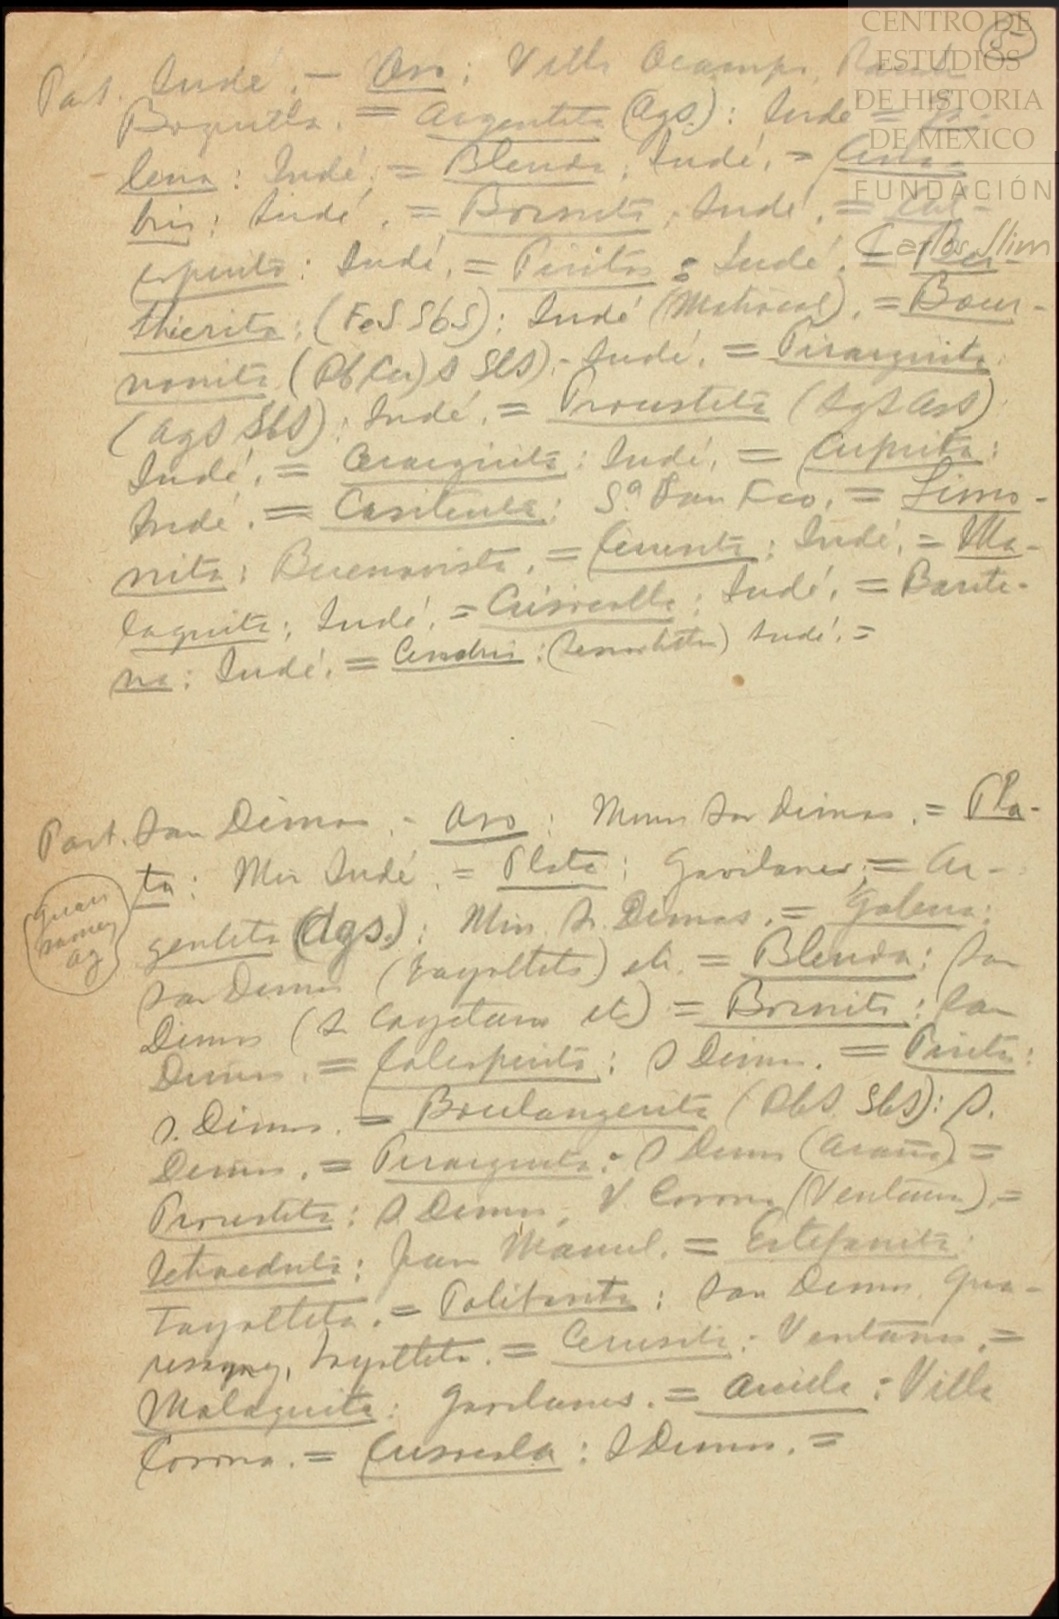 CENTRO DE
ESTUDIOS
DE HISTORIA
DE MEXICO
FUNDACIÓN
Carlos Slim
5
Part. Indé. — Oro: Villa Ocampo,
Boquilla. = Argentita (Ags.): Inde = Ga-
lena: Indé. = Blenda: Indé. = Cina-
brio: Indé. = Bornita: Indé. = Cal-
copirita: Indé. = Piritas: Indé. = Ber-
thierita: (FeS SbS): Indé (Matracal). = Bour-
nonita (Pb Cu) S SbS). Indé. = Pirargirita
(AgS SbS): Indé. = Proustita (AgS AsS)
Indé. = Cerargirita: Indé. = Cuprita:
Indé. = Casiterita: Sa. San Fco. = Limo-
nita: Buenavista. = Cerusita: Indé. = Ma-
laquita: Indé. = Crisocolla: Indé. = Barite-
na: Indé. = : Indé. =
Part. San Dimas. - Oro: Min San Dimas. = Pla-
ta: Min Indé. = Plata: Gavilanes. = Ar-
gentita (Ags.): Min. S. Dimas. = Galena:
San Dimas (Tayoltita) etc. = Blenda: San
Dimas (S. Cayetano etc) = Bornita: San
Dimas. = Calcopirita: S Dimas. = Pirita:
S. Dimas. = Boulangerita (PbS SbS): S.
Dimas. = Pirargirita: S Dimas (Araña) =
Proustita: S Dimas, V. Corona (Ventanas). =
Tetraedrita: Juan Manuel. = Estefanita:
Tayoltita. = Polibasita: San Dimas,
Tayoltita. = Cerusita: Ventanas. =
Malaquita: Gavilanes. = : Villa
Corona. = Crisocola: S Dimas. =
Guari
samey
Ag